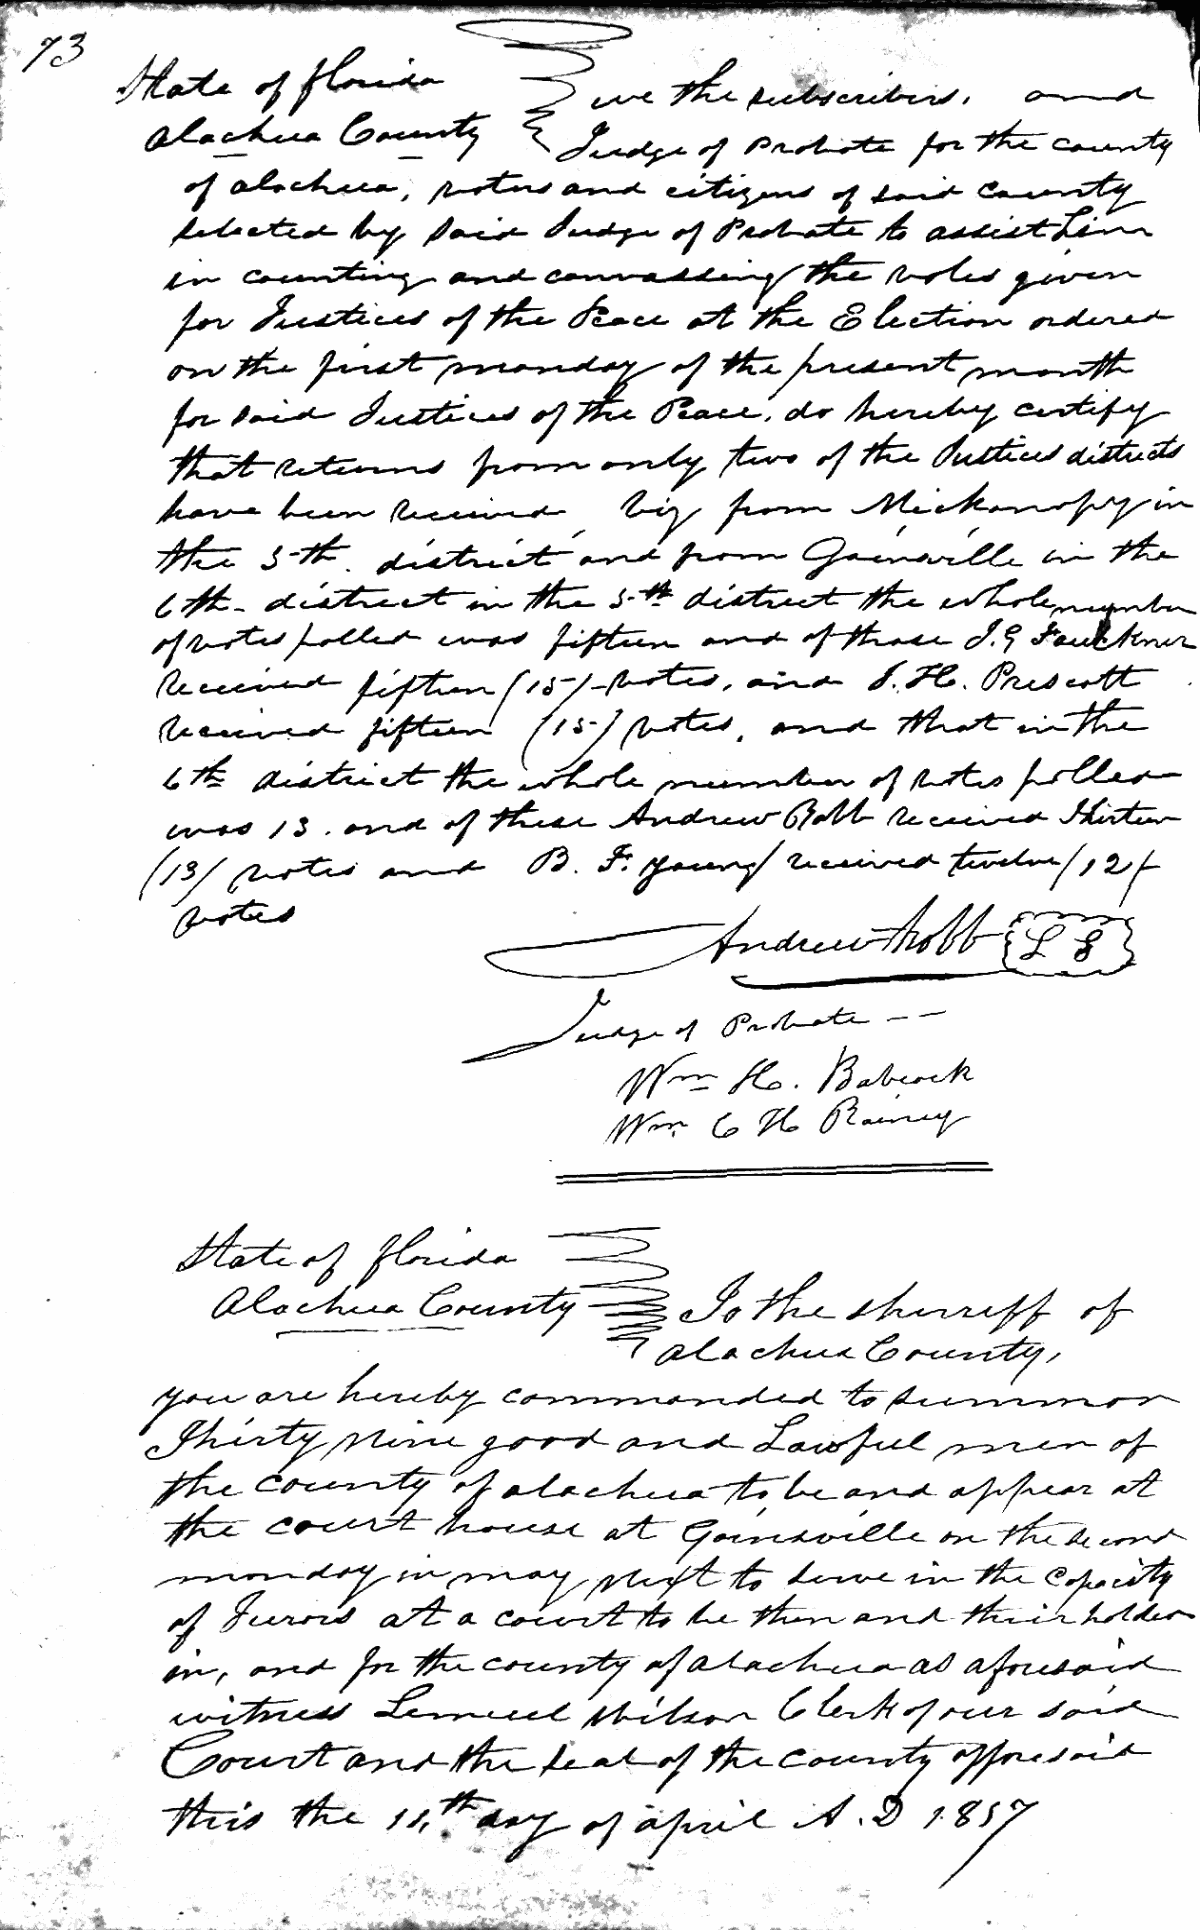 73
State of florida
Alachua County
we the subscribers, and
Judge of Probate for the county
of alachua, voters and citizens of said county
selected by said Judge of Probate to assist him
in counting and canvassing the votes given
for Justices of the Peace at the Election ordered
on the first monday of the present month
for said Justices of the Peace, do hereby certify
that returns from only two of the Justices districts
have been received, viz from Mickanopy in
the 5th district and from Gainsville in the
6th district in the 5th district the whole number
of votes polled was fifteen and of those J. G Faulkner
received fifteen (15) votes, and J. H. Prescott
received fifteen (15) votes, and that in the
6th district the whole number of votes polled
was 13. and of these Andrew Robb received Thirteen
(13) votes and B. F. Young received twelve (12)
votes
Andrew Robb L S
Judge of Probate
Wm H. Babcock
Wm C H Rainey
State of florida
Alachua County
To the sherreff of
alachua County,
you are hereby commanded to summon
Thirty Nine good and Lawful men of
the county of alachua to be and appear at
the court house at Gainsville on the second
monday in may Next to serve in the Capacity
of Jurors at a court to be then and their holden
in, and for the county of alachua as aforesaid
witness Lemuel Wilson Clerk of our said
Court and the seal of the county afforesaid
this the 11,th day of april A. D 1857